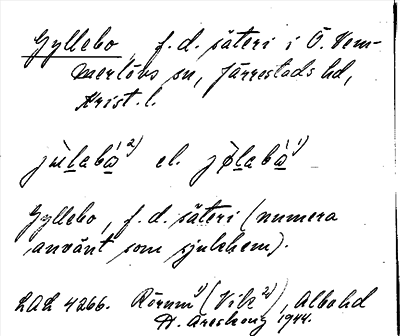 Gyllebo, f.d. säteri i Ö. Vem-
merlövs sn, Järrestads hd,
Krist. l.
jùlabá 2) el. jø̀labá 1)
Gyllebo, f.d. säteri (numera
använt som sjukhem).
LAL 4266. Rörum 1) (Vik 2)), Albo hd
A. Areskoug 1944.